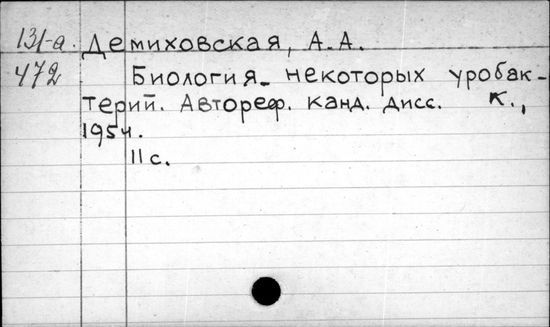 131-а. Демиховская, А.А.
472 Биология некоторых уробак-
терий. Автореф. канд. дисс. К.,
1954.
11 с.